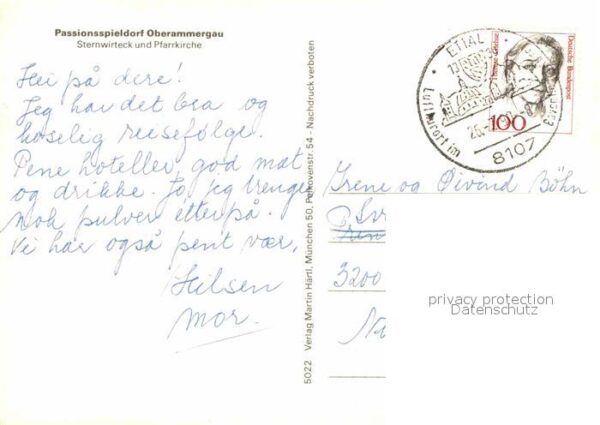 Passionsspieldorf Oberammergau
Sternwirteck und Pfarrkirche
Hei på dere!
Jeg har det bra og
koselig reisefølge.
Pene hoteller, god mat
og drikke. Jo jeg trenger
nok pulver etterpå.
Vi har også pent vær,
Hilsen
mor.
5022 Verlag Martin Härtl, München 50, Pelkovenstr. 54 - Nachdruck verboten
ETTAL
Luftkurort im
8107
Deutsche Bundespost
100
Irene og Øivind Böhn
3200
privacy protection
Datenschutz